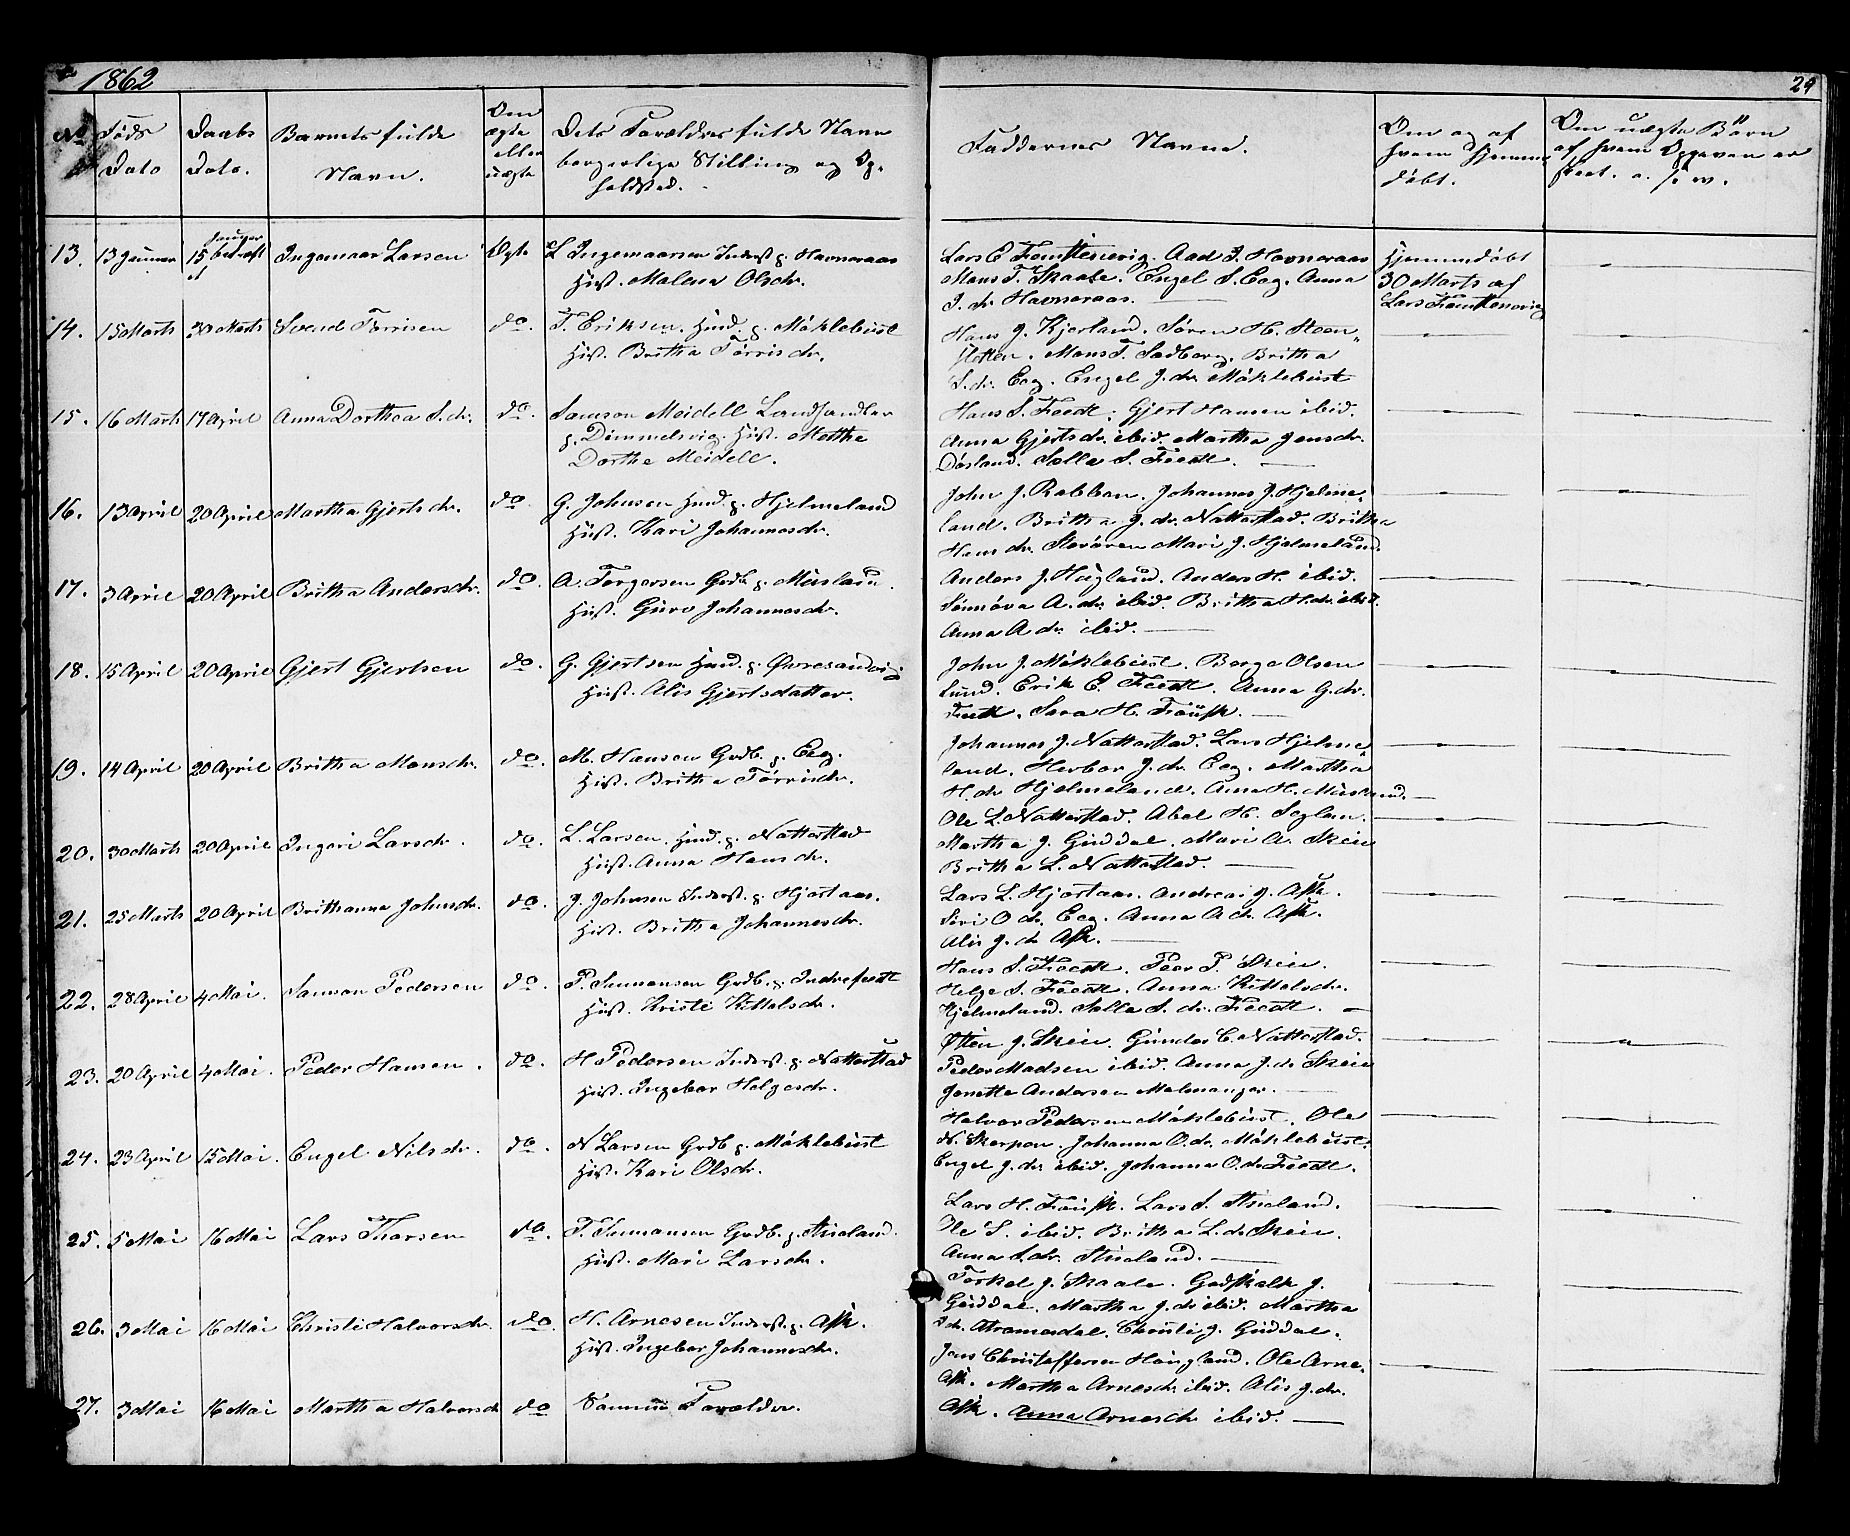 1862
29
No Føds Dato
Daabs Dato.
Barnets fulde Navn.
Om ægte eller uægte
Dets Forældres fulde Navn borgerlige Stilling og Op-
holdsted.
Faddernes Navne.
Om og af hvem hjemme døbt.
Om uægte Börn af hvem Opgaven er skeet. o. s. v.
13. 13 Januar 15 Januar Ingemaar Larsen Ægte L Ingemaarsen Inderst p. Havneraas
Hust. Malena Olsdr.
Lars E Femtenvig. Aad J. Havneraas
Mons T. Skaale. Engel S. Eeg. Anna
J. dr Havneraas.
Hjemmedøbt
30 Marts af
Lars Femtenvig
14. 15 Marts 30 Marts Svend Tørrisen do. T. Eriksen. Husmd. p. Möklebust
Hust. Britha Tørrisdr.
Hans J. Kjerland. Søren H. Steen-
sletten. Mons T. Sadberg. Britha
S. dr. Eeg. Engel J. dr Möklebust
15. 16 Marts 17 April Anna Dorthea S. dr. do. Samson Meidell Landhandler
p. Dimmelsvig. Hust. Mette
Dorthe Meidell.
Hans S. Feedt. Gjert Hansen ibid.
Anna Gjertsdr. ibid. Martha Jensdr.
Døsland. Salla S. Feedt.
16. 13 April 20 April Martha Gjertsdr. do. G. Johnsen Husmd. p. Hjelmeland
Hust. Kari Johannesdr.
John J. Rabben. Johannes J. Hjelme-
land. Britha J. dr. Nattestad. Britha
Hans dr. Storøren Mari J. Hjelmeland.
17. 3 April 20 April Britha Andersdr. do. A. Torgersen Grdb. p. Musland.
Hust. Guro Johannesdr.
Anders J. Hugland. Anders H. ibid.
Sinnöva A. dr. ibid. Britha H. dr. ibid.
Anna A dr. ibid.
18. 15 April 20 April Gjert Gjertsen do. G. Gjertsen Husmd. p. Øvresandvig
Hust. Alis Gjertsdatter.
John J. Möklebust. Børge Olsen
Lund. Erik E. Feedt. Anna G. dr.
Feedt. Sara H. Fousk.
19. 14 April 20 April Britha Monsdr. do. M. Hansen Grdb. p. Eeg.
Hust. Britha Tørrisdr.
Johannes J. Nattestad. Lars Hjelme-
land. Herbor J. dr. Eeg. Martha
H. dr Hjelmeland. Anna H. Musland.
20. 30 Marts 20 April Ingeri Larsdr. do. L. Larsen. Husmd. p. Nattestad
Hust. Anna Hansdr.
Ole L. Nattestad. Abel H. Seglem.
Martha J. Guddal. Mari A. Skeie
Britha L. Nattestad.
21. 25 Marts 20 April Brithanna Johnsdr. do. J. Johnsen Inderst. p. Hjortaas.
Hust. Britha Johannesdr.
Lars L. Hjortaas. Andreas J. Ask.
Siri O dr. Eeg. Anna A dr. Ask.
Alis J. dr Ask.
22. 28 April 4 Mai. Samson Pedersen do. P. Samsonsen Grdb. p. Indrefeedt
Hust. Kristi Kittelsdr.
Hans S. Feedt. Peer P. Skeie.
Helge S. Feedt. Anna Kittelsdr.
Hjelmeland. Salla S. dr. Feedt.
23. 20 April 4 Mai. Peder Hansen. do. H Pedersen Inderst. p. Nattestad
Hust. Ingebor Helgesdr.
Østen J. Skeie. Gunder E. Nattestad.
Peder Madsen ibid. Anna J. dr Skeie
Jenette Andersen Malmanger.
24. 23 April 15 Mai. Engel Nilsdr. do. N Larsen Grdb p. Möklebust
Hust. Kari Olsdr.
Halvor Pedersen Möklebust. Ole
N. Skorpen. Johanna O. dr. Möklebust.
Engel J. dr. ibid. Johanna O. dr Feedt.
25. 5 Mai 16 Mai Lars Thorsen do. T. Samsonsen Grdb. p. Struland.
Hust. Mari Larsdr.
Lars H. Fousk. Lars S. Struland.
Ole S. ibid. Britha L. dr Skeie.
Anna S dr. Struland.
26. 3 Mai 16 Mai Christi Halvorsdr. do. H. Arnesen Inderst. p. Ask.
Hust. Ingebor Johannesdr.
Torkel J. Skaale. Godskalk J.
Guddal. Martha J. dr ibid. Martha
J dr. Christi J. Guddal.
27. 3 Mai 16 Mai Martha Halvorsdr do Samme Forældre.
Jens Christoffersen Haugland. Ole Arne-
Ask. Martha Arnesdr. ibid. Alis J. dr.
Ask. Anna Arnesdr ibid.